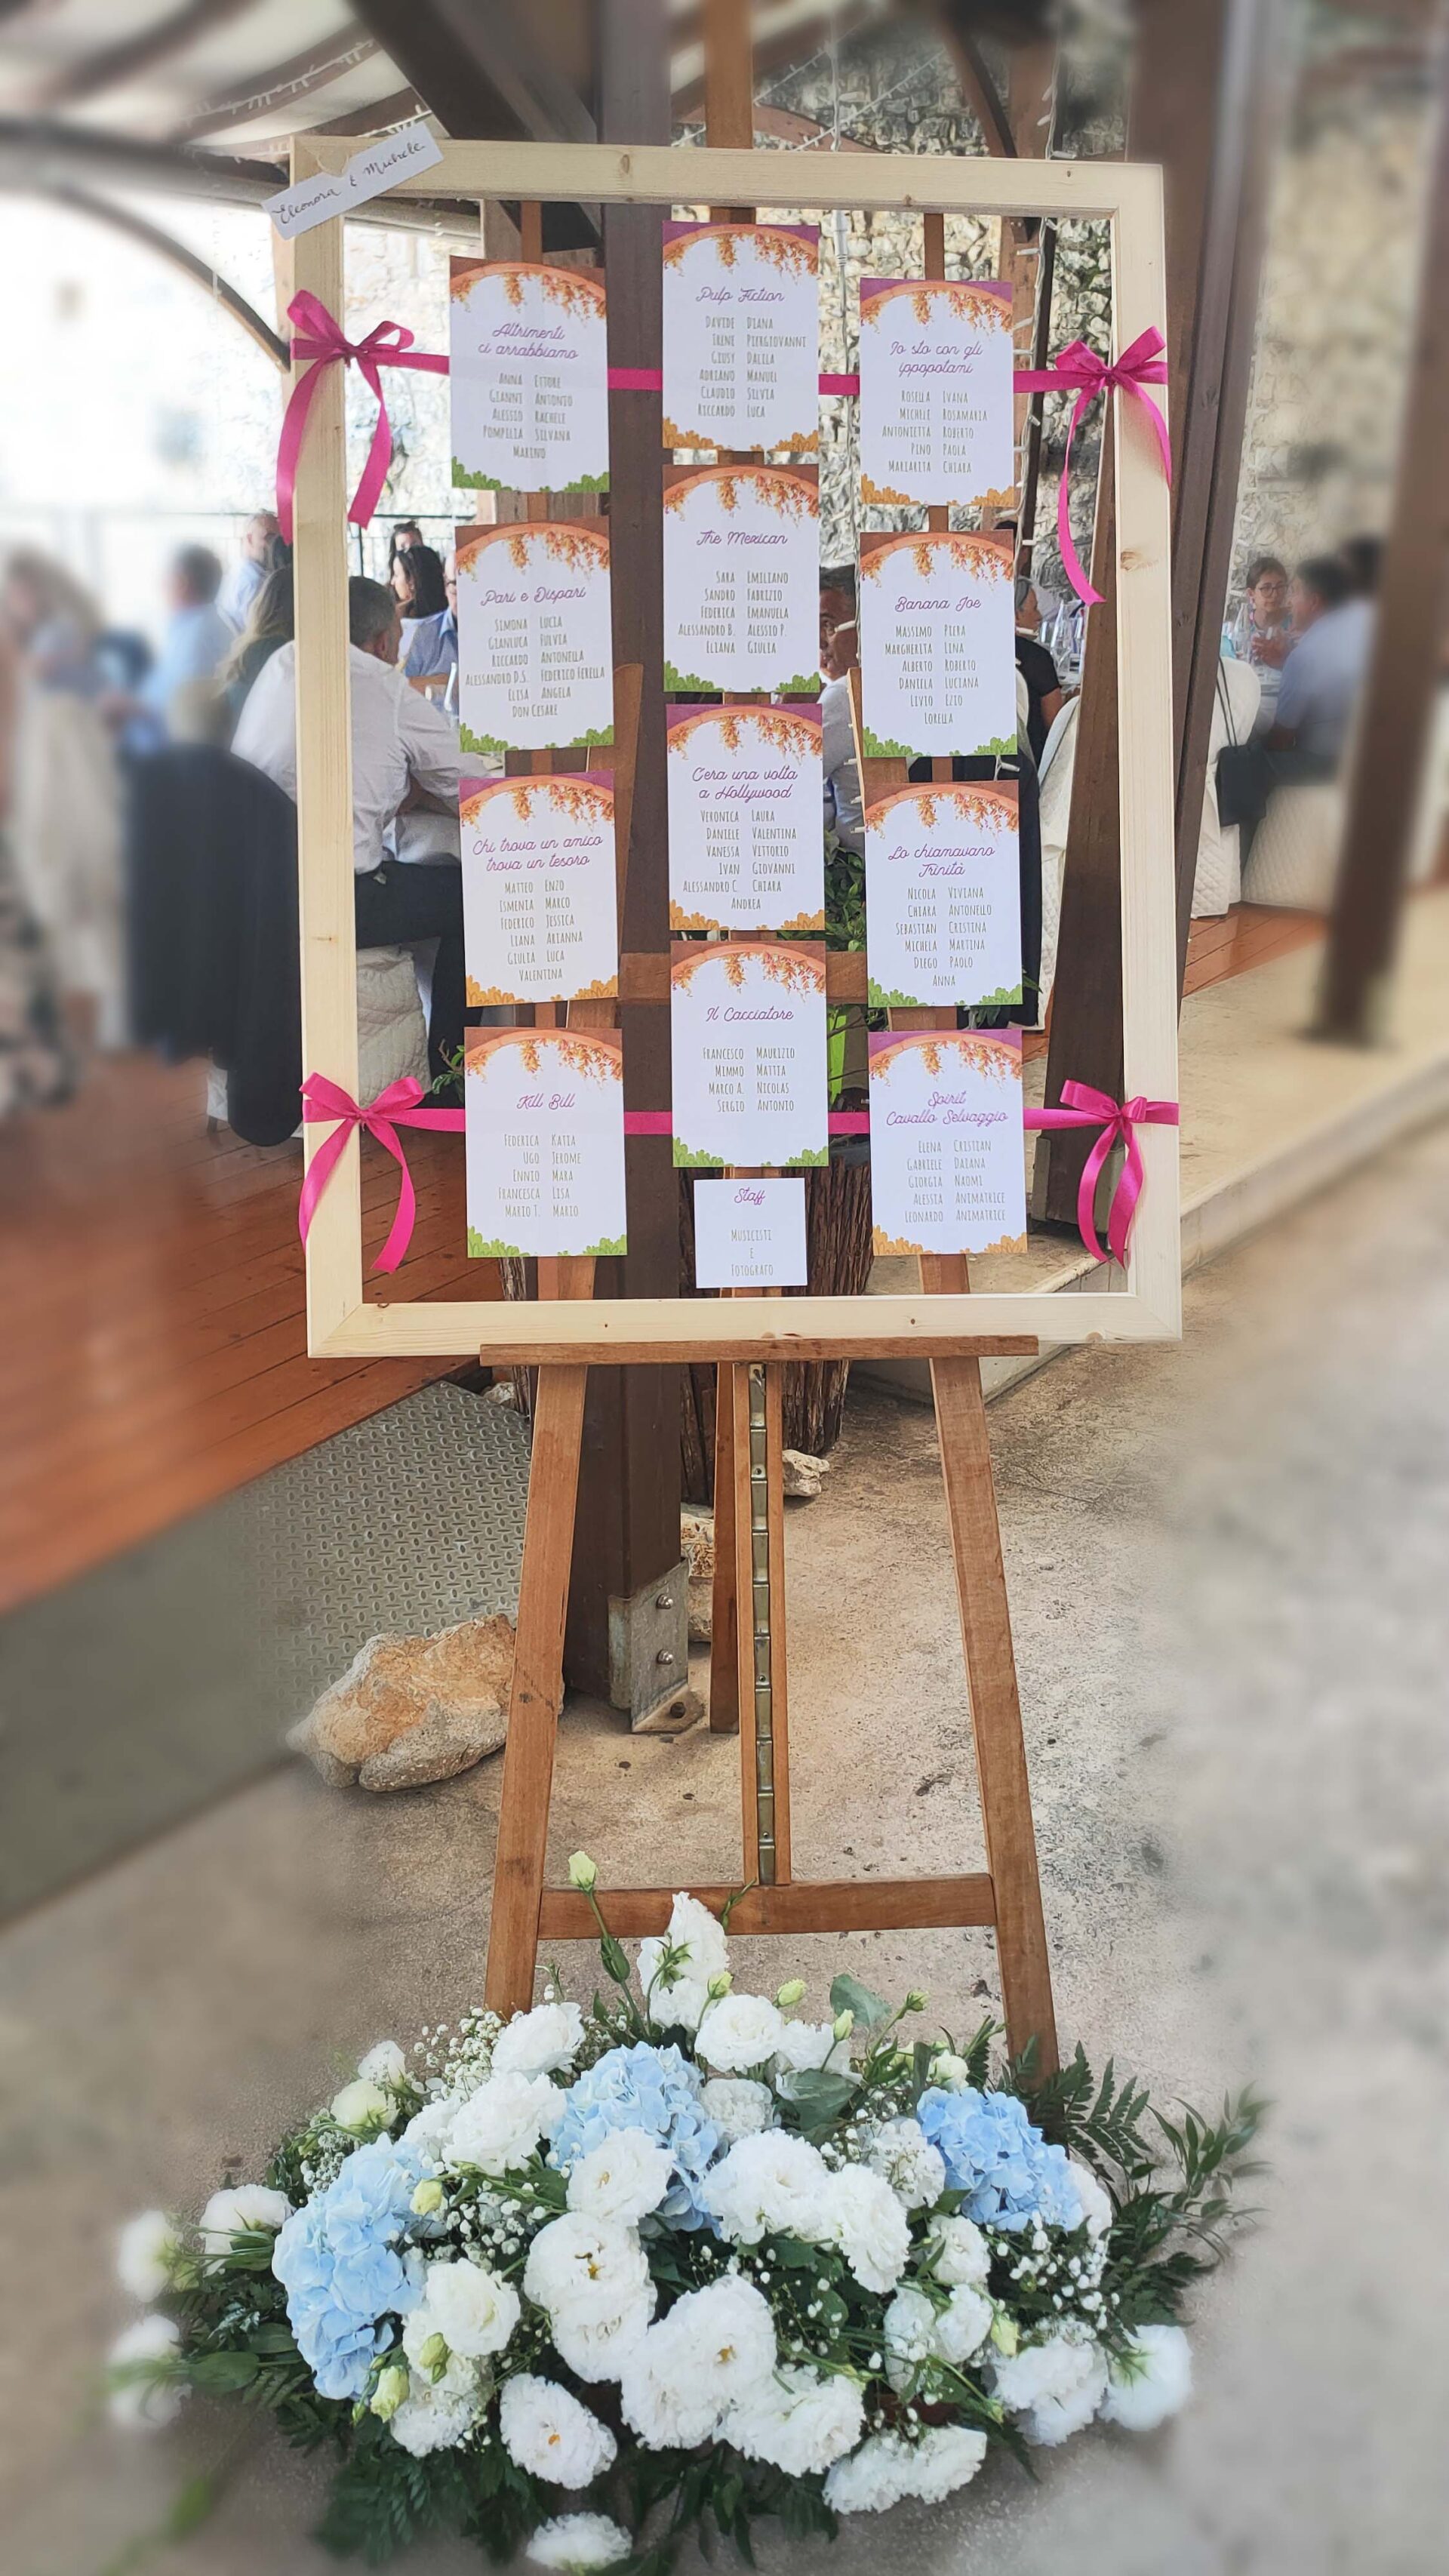 Eleonora & Michele
Altrimenti
ci arrabbiamo
ANNA ETTORE
GIANNI ANTONIO
ALESSIO RACHELE
POMPILIA SILVANA
MARINO
Pari e Dispari
SIMONA LUCIA
GIANLUCA FULVIA
RICCARDO ANTONELLA
ALESSANDRO D.S. FEDERICO FERELLA
ELISA ANGELA
DON CESARE
Chi trova un amico
trova un tesoro
MATTEO ENZO
ISMENIA MARCO
FEDERICO JESSICA
LIANA ARIANNA
GIULIA LUCA
VALENTINA
Kill Bill
FEDERICA KATIA
UGO JEROME
ENNIO MARA
FRANCESCA LISA
MARIO T. MARIO
Pulp Fiction
DAVIDE DIANA
IRENE PIERGIOVANNI
GIUSY DALILA
ADRIANO MANUEL
CLAUDIO SILVIA
RICCARDO LUCA
The Mexican
SARA EMILIANO
SANDRO FABRIZIO
FEDERICA EMANUELA
ALESSANDRO B. ALESSIO P.
ELIANA GIULIA
C'era una volta
a Hollywood
VERONICA LAURA
DANIELE VALENTINA
VANESSA VITTORIO
IVAN GIOVANNI
ALESSANDRO C. CHIARA
ANDREA
Il Cacciatore
FRANCESCO MAURIZIO
MIMMO MATTIA
MARCO A. NICOLAS
SERGIO ANTONIO
Staff
MUSICISTI
E
FOTOGRAFO
Io sto con gli
ippopotami
ROSELLA IVANA
MICHELE ROSAMARIA
ANTONIETTA ROBERTO
PINO PAOLA
MARIARITA CHIARA
Banana Joe
MASSIMO PIERA
MARGHERITA LINA
ALBERTO ROBERTO
DANIELA LUCIANA
LIVIO EZIO
LORELLA
Lo chiamavano
Trinità
NICOLA VIVIANA
CHIARA ANTONELLO
SEBASTIAN CRISTINA
MICHELA MARTINA
DIEGO PAOLO
ANNA
Spirit
Cavallo Selvaggio
ELENA CRISTIAN
GABRIELE DAIANA
GIORGIA NAOMI
ALESSIA ANIMATRICE
LEONARDO ANIMATRICE